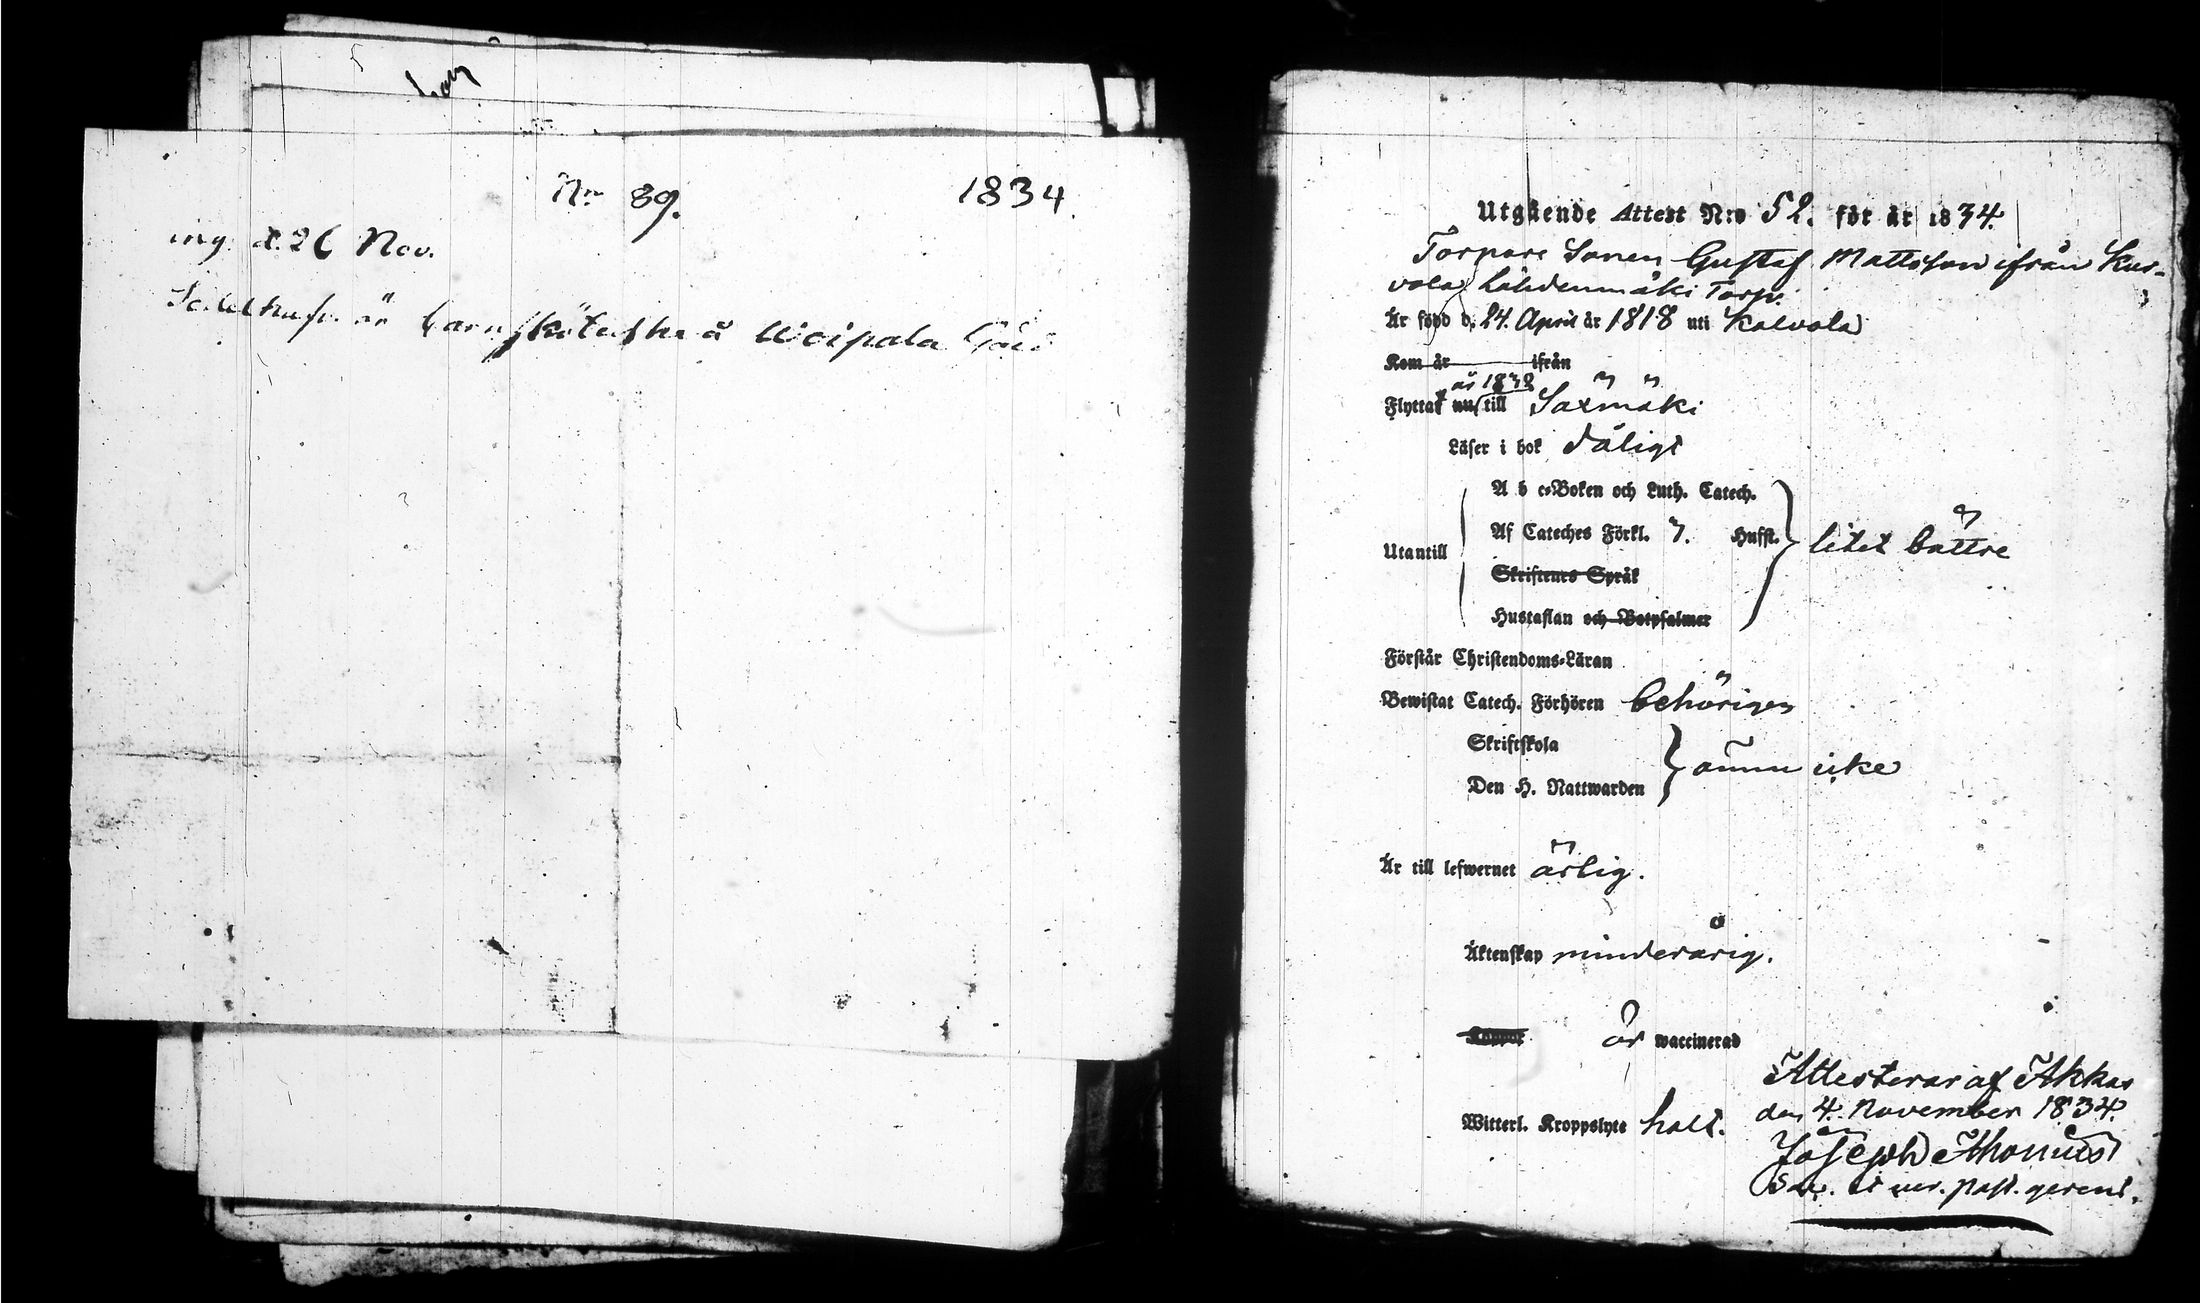 Nr 89. 1834.
ing. d. 26 Nov.
är barnsköterska å Woipala Gård
Utgående Attest N:o 52. för år 1834.
Torpare Sonen Gustaf Mattsson ifrån Kur-
vola Lähdenmäki Torp.
Är född d. 24. April år 1818 uti Kalvola
Kom år ifrån
år 1832
Flyttat nu till Säxmäki
Läser i bok dåligt
A b c-Boken och Luth. Catech.
Af Cateches Förkl. 7. Hufst.
Utantill litet bättre
Skriftenes Språk
Hustaflan och Botpsalmer
Förstår Christendoms-Läran
Bewistat Catech. Förhören behörigen
Skriftskola
ännu icke
Den H. Nattwarden
Är till lefwernet ärlig.
Äktenskap minderårig.
Koppor är waccinerad
Attesterar af Akkas
den 4. November 1834.
Witterl. Kroppslyte halt.
Joseph Ahonius
Sac. et ver. past. gerens.